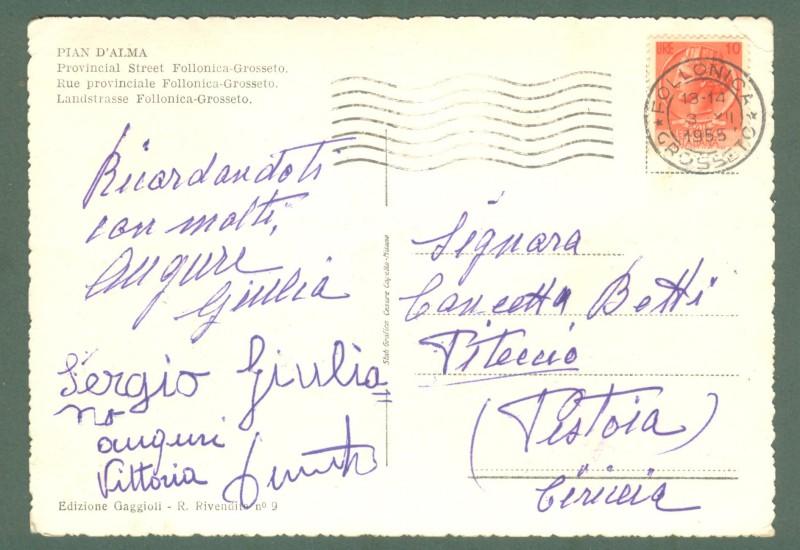 PIAN D'ALMA
Provincial Street Follonica-Grosseto.
Rue provinciale Follonica-Grosseto.
Landstrasse Follonica-Grosseto.
LIRE 10
FOLLONICA
13-14
3 XII
1955
GROSSETO
Ricordandoti
con molti,
auguri
Giulia
Sergio Giulia
no
auguri
Vittoria
Edizione Gaggioli - R. Rivendita nº 9
Stab. Grafico Cesare Capello-Milano
Signora
Concetta Betti
Piteccio
(Pistoia)